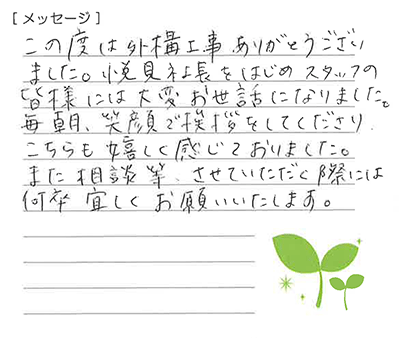 [メッセージ]
この度は外構工事ありがとうござい
ました。悦見社長をはじめスタッフの
皆様には大変お世話になりました。
毎朝、笑顔で挨拶をしてくださり、
こちらも嬉しく感じておりました。
また相談等、させていただく際には
何卒宜しくお願いいたします。